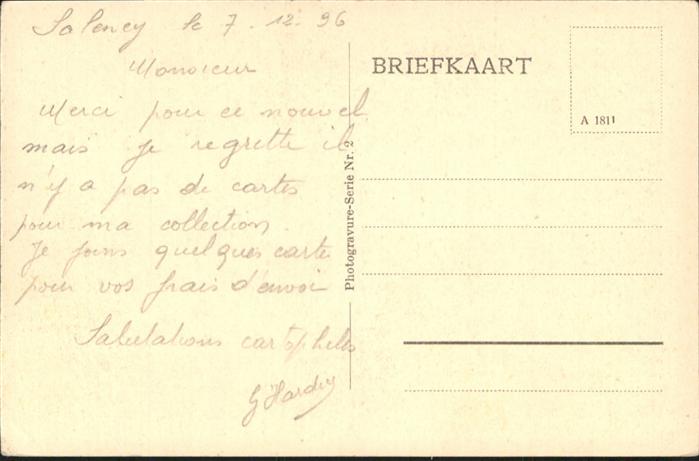 Salency le 7.12.96
Monsieur
Merci pour ce nouvel
mais je regrette il
n'y a pas de cartes
pour ma collection.
Je joins quelques carte
pour vos frais d'envoi
Salutations cartophiles
G Hardy
Photogravure-Serie Nr. 2
BRIEFKAART
A 1811